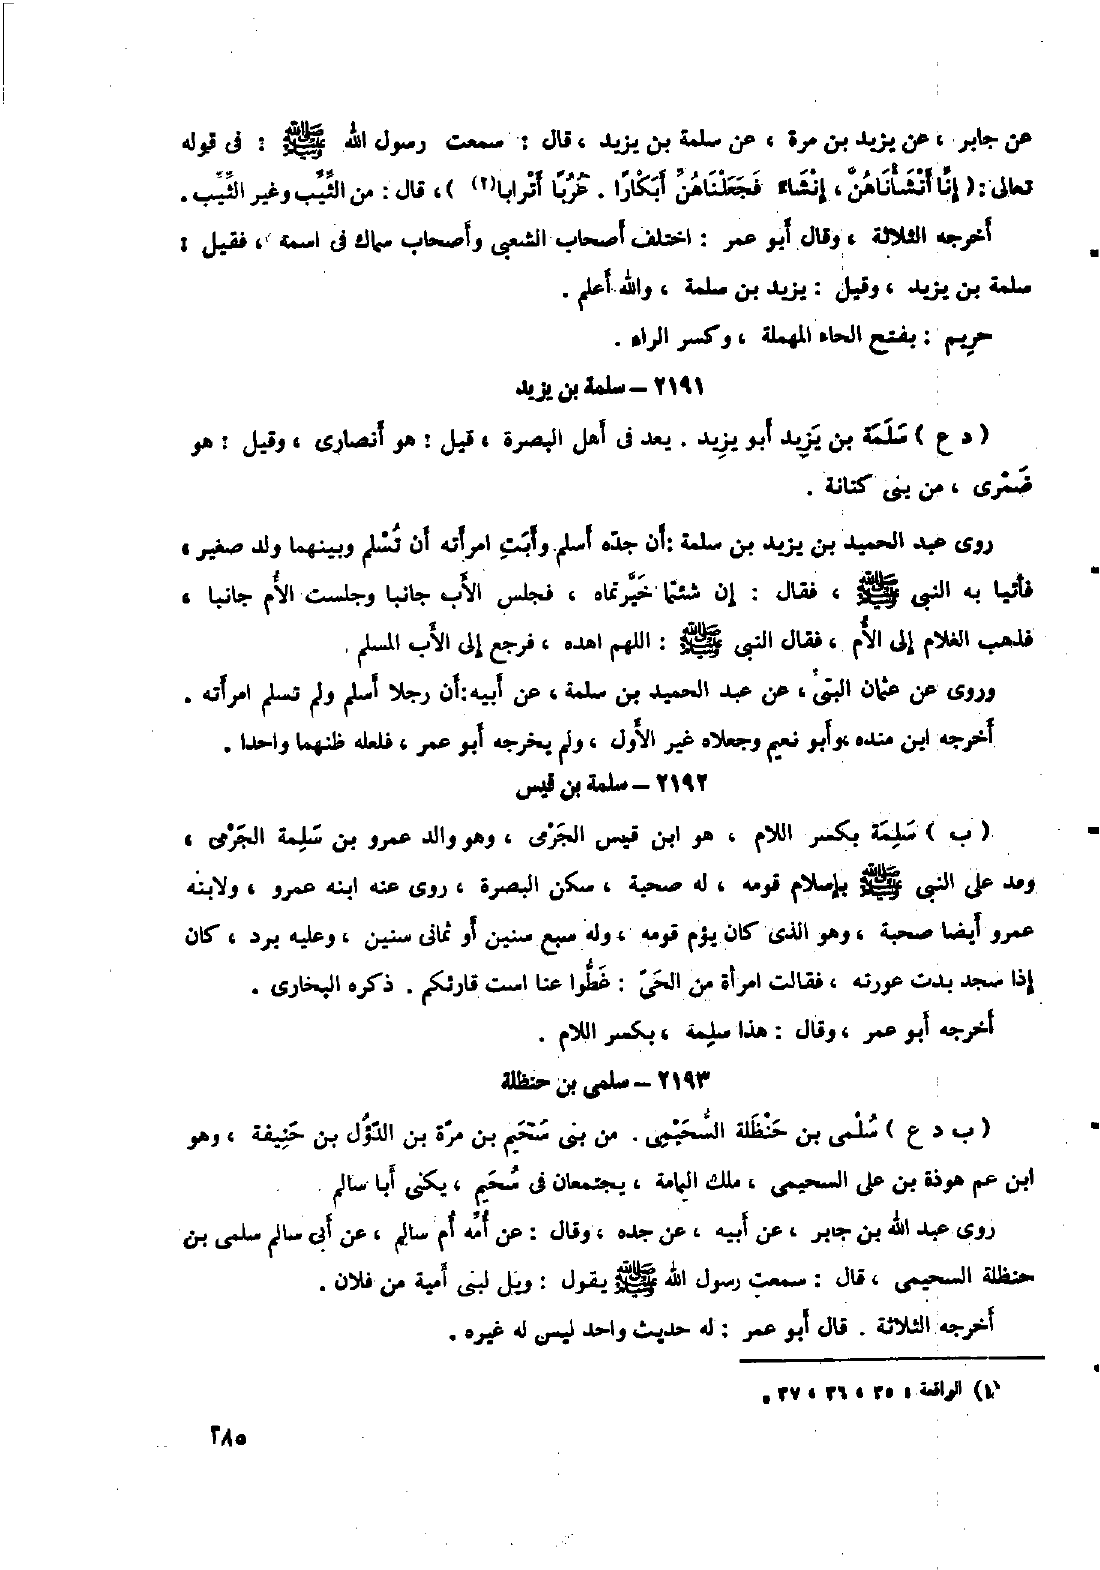 عن جابر ، عن يزيد بن مرة ، عن سلمة بن يزيد ، قال : سمعت رسول الله ﷺ : فى قوله
تعالى : ( إِنَّا أَنْشَأْنَاهُنَّ ، إِنْشَاءً فَجَعَلْنَاهُنَّ أَبْكَارًا . عُرُبًا أَتْرابا(٢) ) ، قال : من الثَّيِّب وغير الثَّيِّب .
أخرجه الثلاثة ، وقال أبو عمر : اختلف أصحاب الشعبى وأصحاب سماك فى اسمة ، فقيل :
سلمة بن يزيد ، وقيل : يزيد بن سلمة ، والله أعلم .
حرِيم : بفتح الحاء المهملة ، وكسر الراء .
٢١٩١ – سلمة بن يزيد
( د ع ) سَلَمَة بن يَزِيد أبو يزِيد . يعد فى أهل البصرة ، قيل : هو أنصارى ، وقيل : هو
ضَمْرى ، من بنى كنانة .
روى عبد الحميد بن يزيد بن سلمة :أن جدّه أسلم وأبَتِ امرأته أن تُسْلم وبينهما ولد صغير ،
فأتيا به النبى ﷺ ، فقال : إن شئتما خَيَّرتماه ، فجلس الأب جانبا وجلست الأُم جانبا ،
فذهب الغلام إلى الأُم ، فقال النبى ﷺ : اللهم اهده ، فرجع إلى الأب المسلم .
وروى عن عثمان البتى ، عن عبد الحميد بن سلمة ، عن أبيه:أن رجلا أسلم ولم تسلم امرأته .
أخرجه ابن منده ،وأبو نعيم وجعلاه غير الأَول ، ولم يخرجه أبو عمر ، فلعله ظنهما واحدا .
٢١٩٢ – سلمة بن قيس
( ب ) سَلِمَة بكسر اللام ، هو ابن قيس الجَرْمى ، وهو والد عمرو بن سَلِمة الجَرْمى ،
وفد على النبى ﷺ بإسلام قومه ، له صحبة ، سكن البصرة ، روى عنه ابنه عمرو ، ولابنه
عمرو أيضا صحبة ، وهو الذى كان يؤم قومه ، وله سبع سنين أو ثمانى سنين ، وعليه برد ، كان
إذا سجد بدت عورته ، فقالت امرأة من الحَىّ : غَطُّوا عنا است قارئكم . ذكره البخارى .
أخرجه أبو عمر ، وقال : هذا سلِمة ، بكسر اللام .
٢١٩٣ – سلمى بن حنظلة
( ب د ع ) سُلْمى بن حَنْظَلة السُّحَيْمِى . من بنى سُحَيم بن مرّة بن الدّؤَل بن حَنِيفة ، وهو
ابن عم هوذة بن على السحيمى ، ملك اليمامة ، يجتمعان فى سُحَيم ، يكنى أبا سالم .
روى عبد الله بن جابر ، عن أبيه ، عن جده ، وقال : عن أُمِّه أُم سالم ، عن أبى سالم سلمى بن
حنظلة السحيمى ، قال : سمعت رسول الله ﷺ يقول : ويل لبنى أُمية من فلان .
أخرجه الثلاثة . قال أبو عمر : له حديث واحد ليس له غيره .
(١) الواقعة : ٣٥ ، ٣٦ ، ٣٧ .
٢٨٥